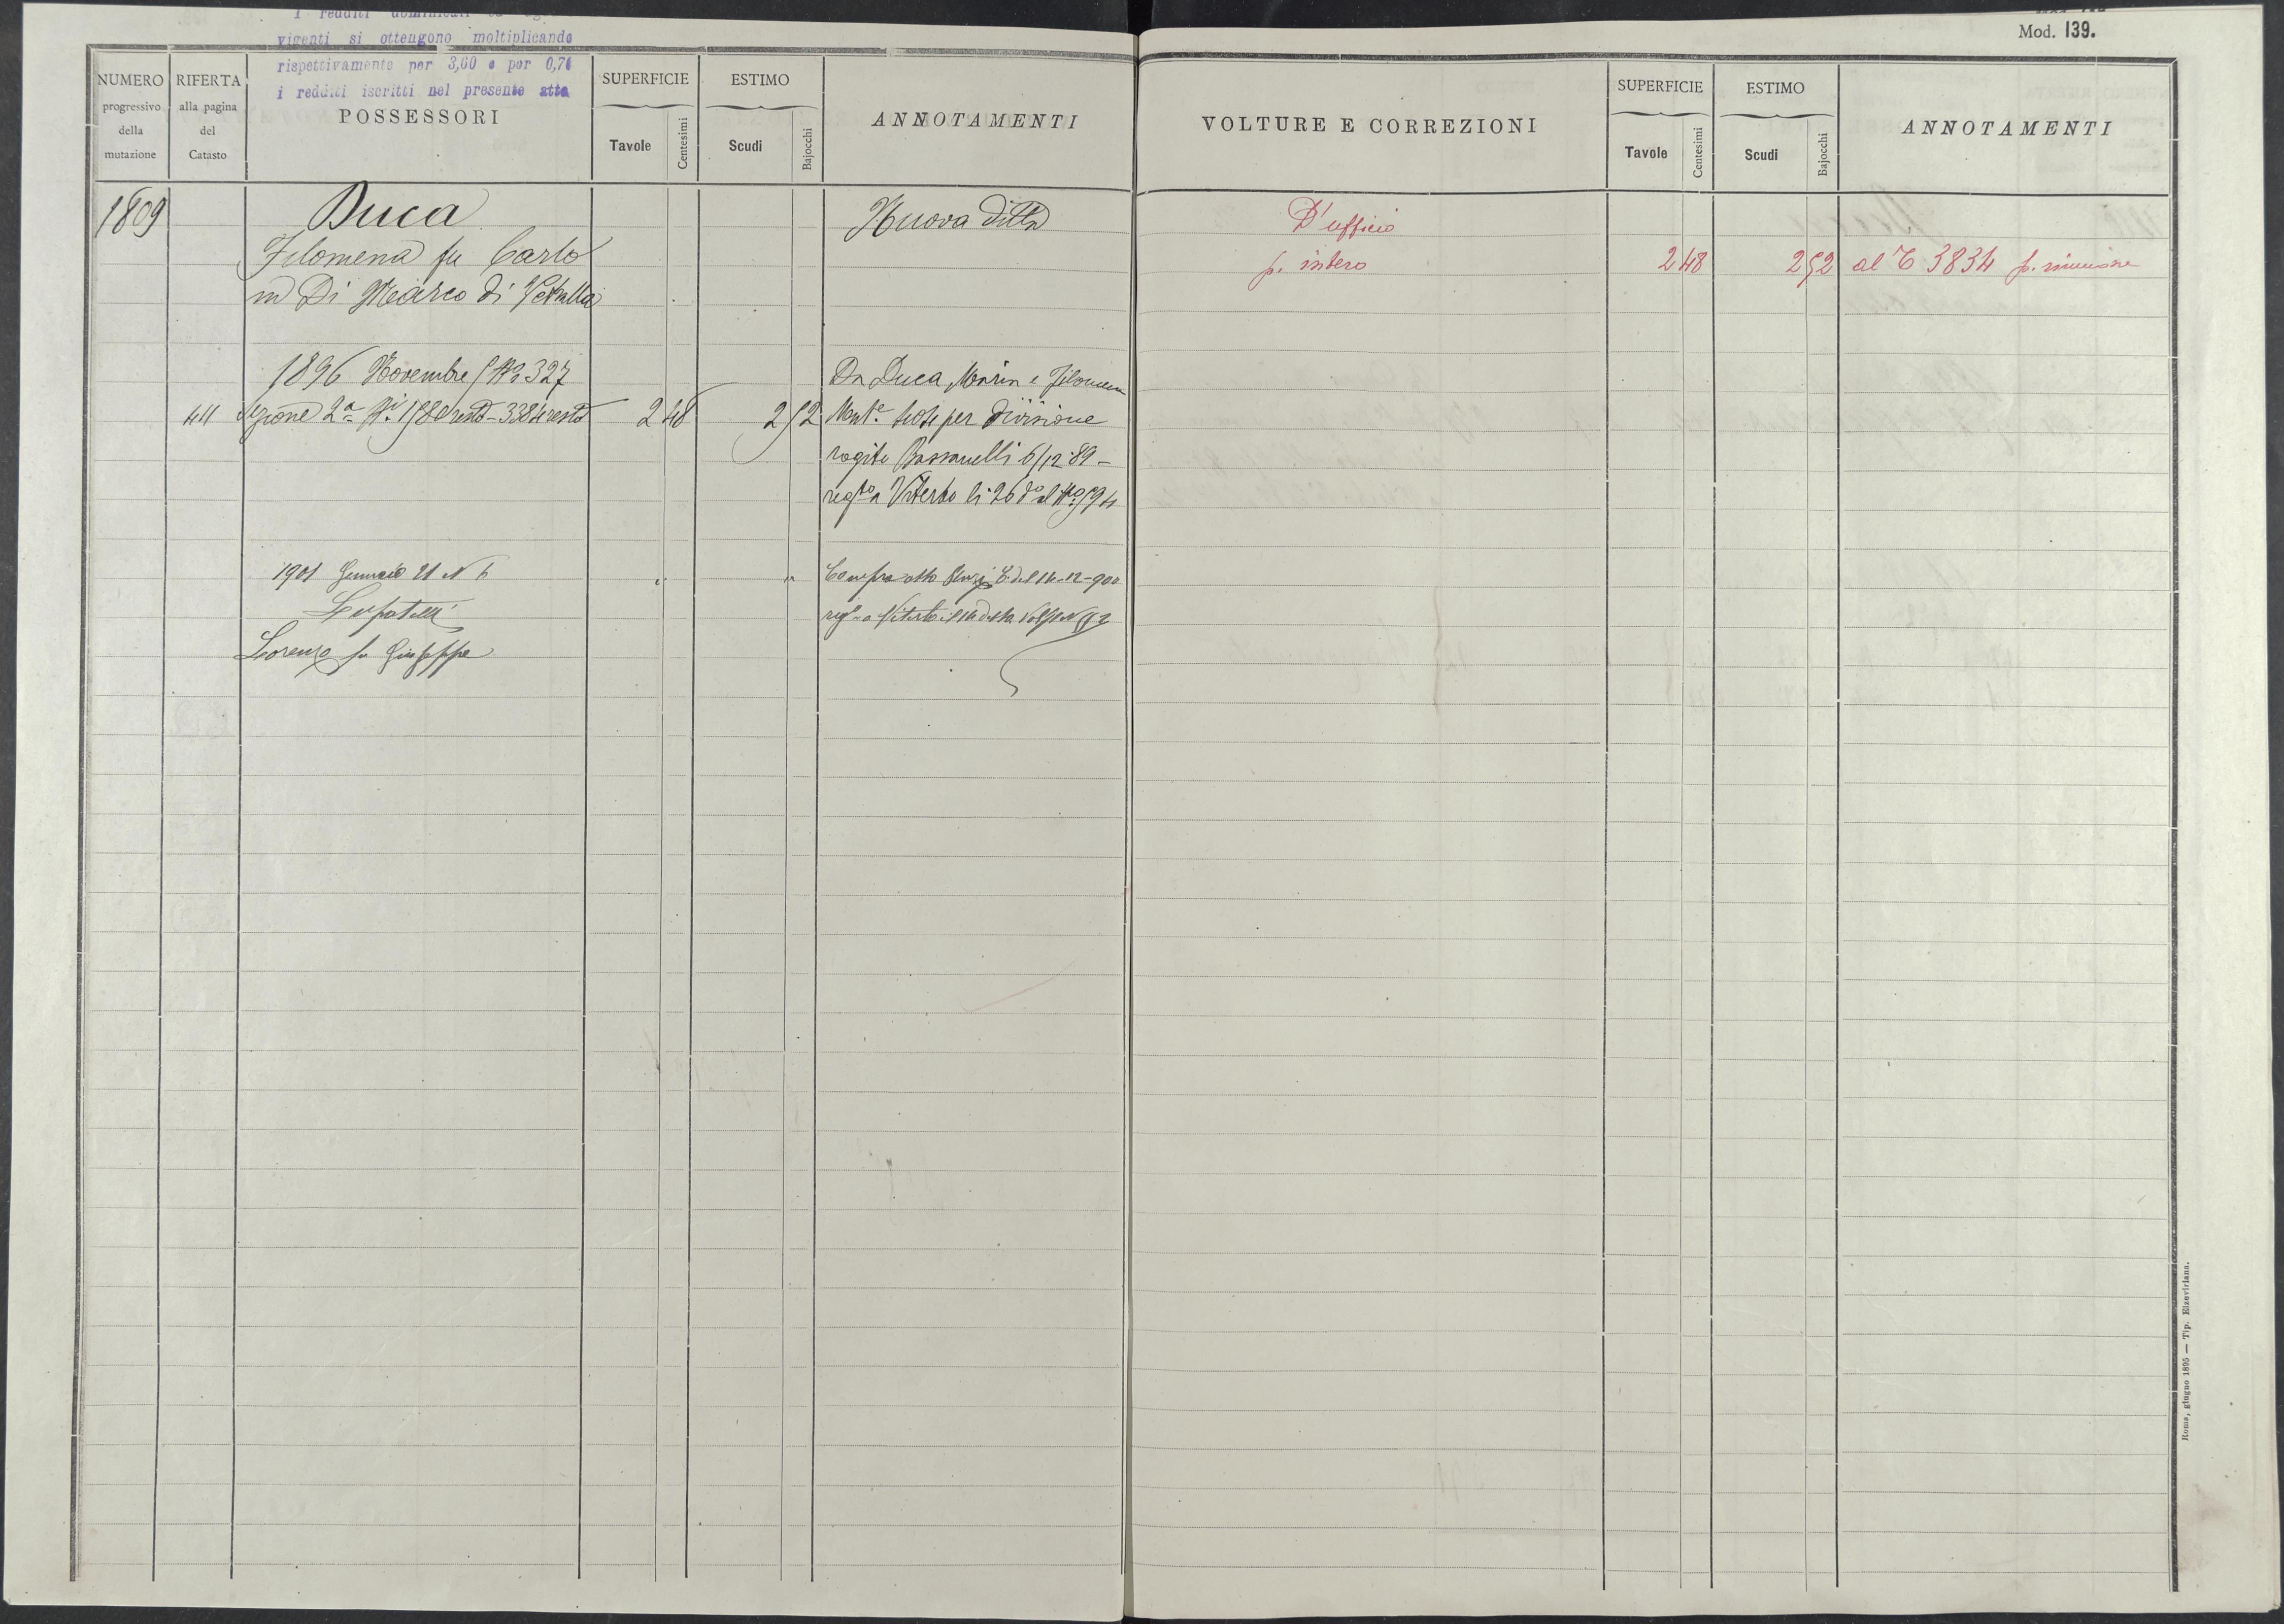 vigenti si ottengono moltiplicando
rispettivamente per 3,00 e per 0,70
i redditi iscritti nel presente atto
NUMERO
progressivo
della
mutazione
RIFERTA
alla pagina
del
Catasto
POSSESSORI
SUPERFICIE
Tavole
Centesimi
ESTIMO
Scudi
Bajocchi
ANNOTAMENTI
1809
Duca
Nuova ditta
Filomena fu Carlo
in Di Marco di Vetralla
1896 Novembre No 327
Da Duca Maria e Filomena
44 Sezione 2a Ni 1580 resto - 3384 resto 2 48 2 52 per divisione
rogito Bassanelli 6/12 89 -
regto a Viterbo li 26 do al No 594
1901 Gennaio 21 N 6 " " Compra atto del 14-12-900
Lupatelli
reg a Viterbo il
Lorenzo fu Giuseppe
Mod. 139.
VOLTURE E CORREZIONI
SUPERFICIE
Tavole
Centesimi
ESTIMO
Scudi
Bajocchi
ANNOTAMENTI
D'ufficio
p. intero 2 48 2 52 al C 3834 p. riunione
Roma, giugno 1895 — Tip. Elzeviriana.